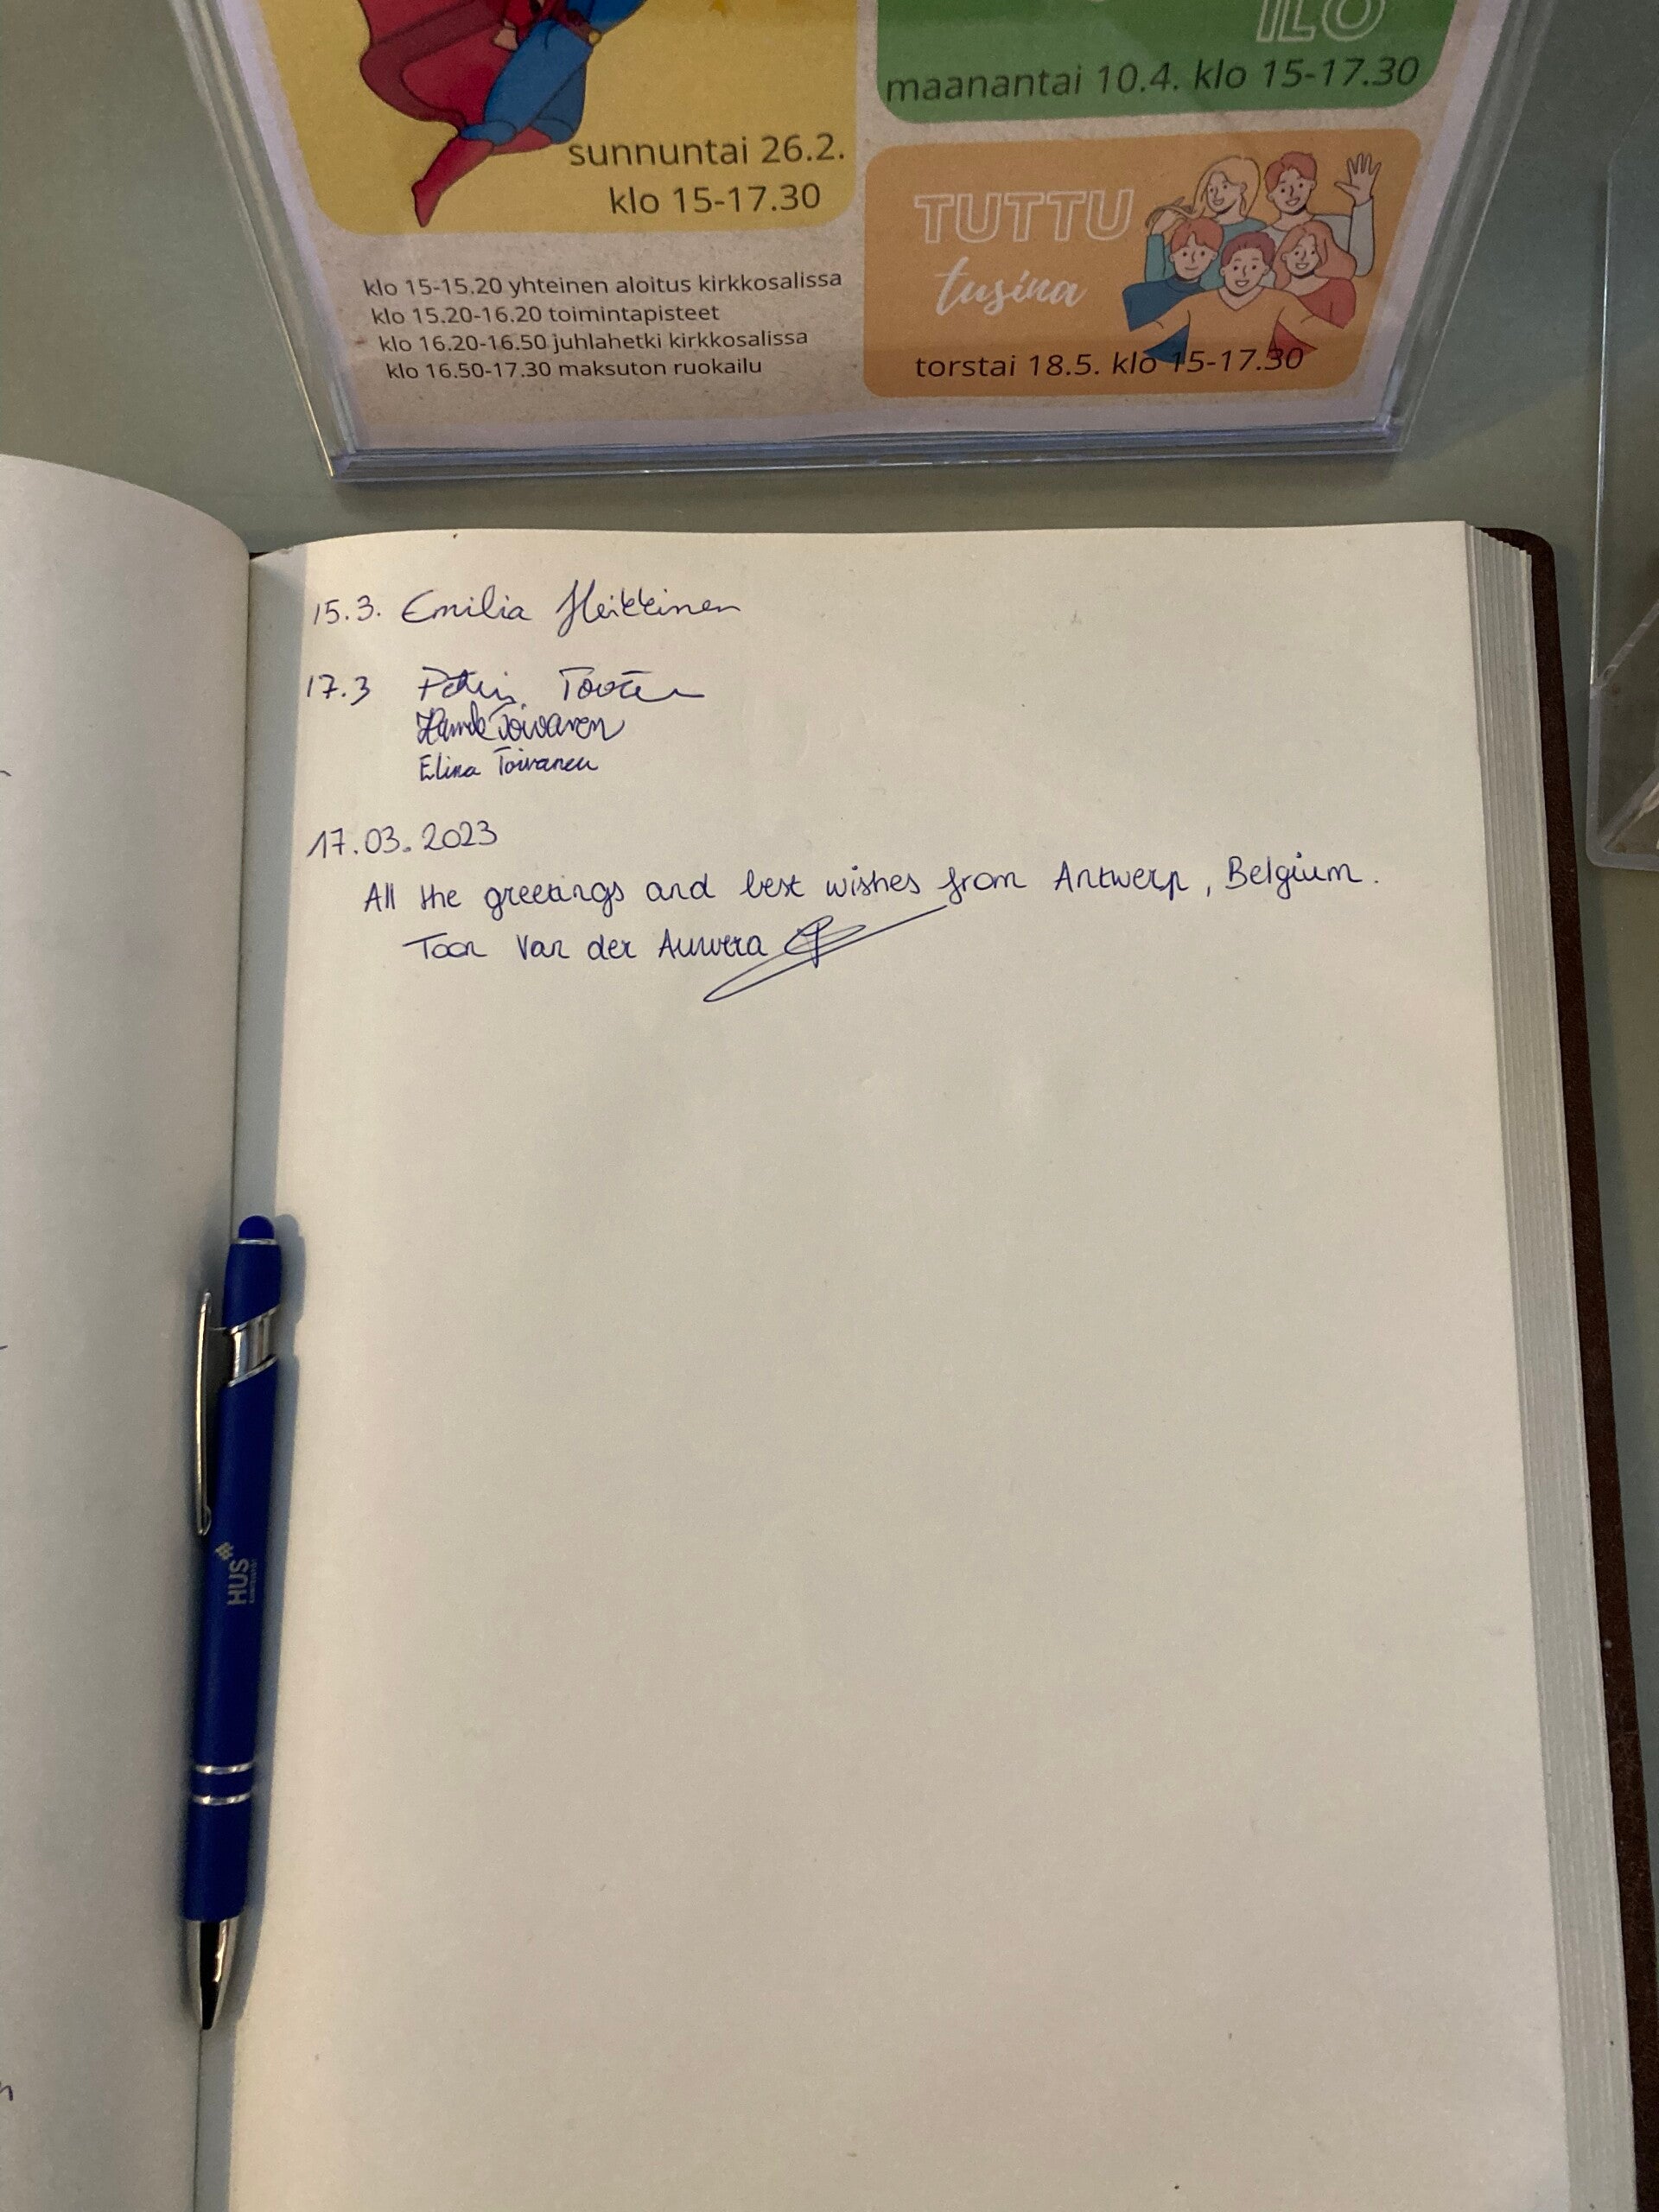 ILO
maanantai 10.4. klo 15-17.30
sunnuntai 26.2.
klo 15-17.30
klo 15-15.20 yhteinen aloitus kirkkosalissa
klo 15.20-16.20 toimintapisteet
klo 16.20-16.50 juhlahetki kirkkosalissa
klo 16.50-17.30 maksuton ruokailu
TUTTU
tusina
torstai 18.5. klo 15-17.30
15.3. Emilia Heikkinen
17.3
Toivanen
Elina Toivanen
17.03.2023
All the greetings and best wishes from Antwerp, Belgium.
Toon Van der Auwera
HUS